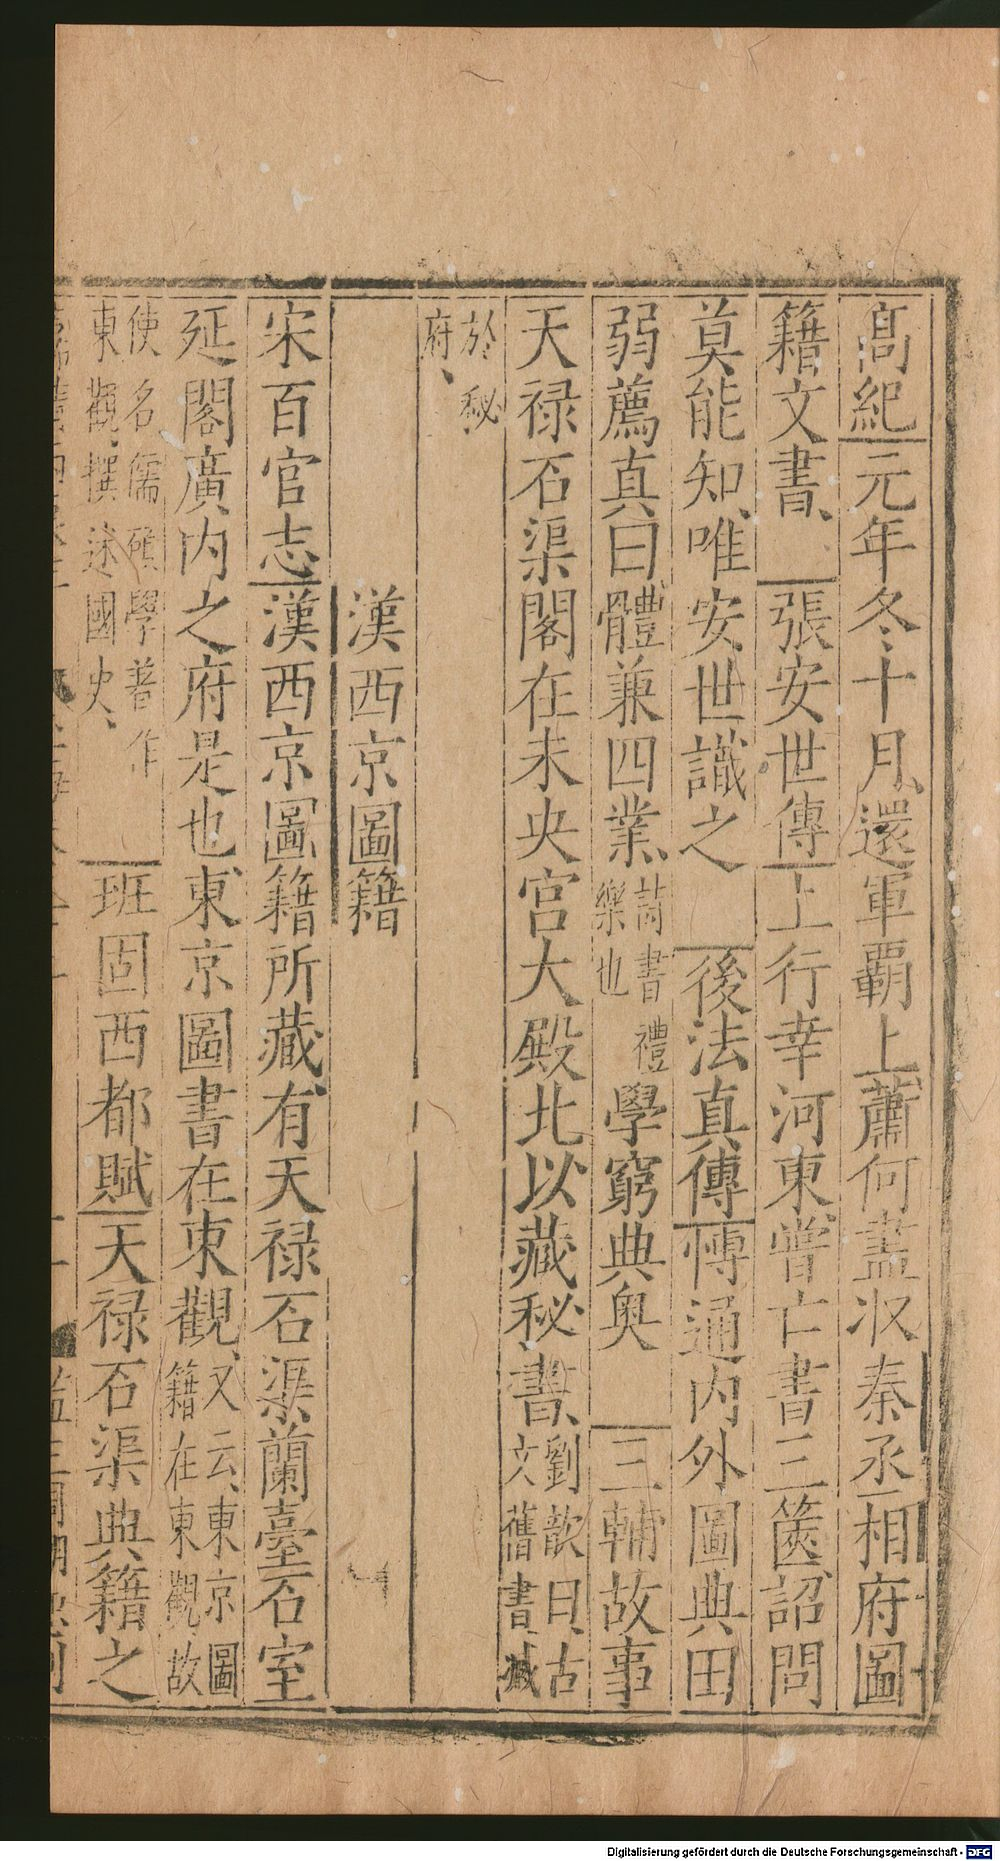 高紀元年冬十月還軍覇上蕭何盡收秦丞相府圖
籍文書、 張安世傳上行幸河東嘗亡書三篋詔問
莫能知、唯安世識之 後法真傳博通内外圖典田
弱薦真曰體兼四業、詩書禮樂也學窮典奥 三輔故事
天禄石渠閣在未央宮大殿北以藏秘書、劉歆曰、古文舊書、藏
於秘府、
漢西京圖籍
宋百官志漢西京圖籍所藏、有天禄石渠蘭臺石室
延閣廣内之府是也、東京圖書在東觀、又云、東京圖籍在東觀故
使名儒碩學著作東觀、撰述國史、 班固西都賦天禄石渠典籍之
Digitalisierung gefördert durch die Deutsche Forschungsgemeinschaft - DFG